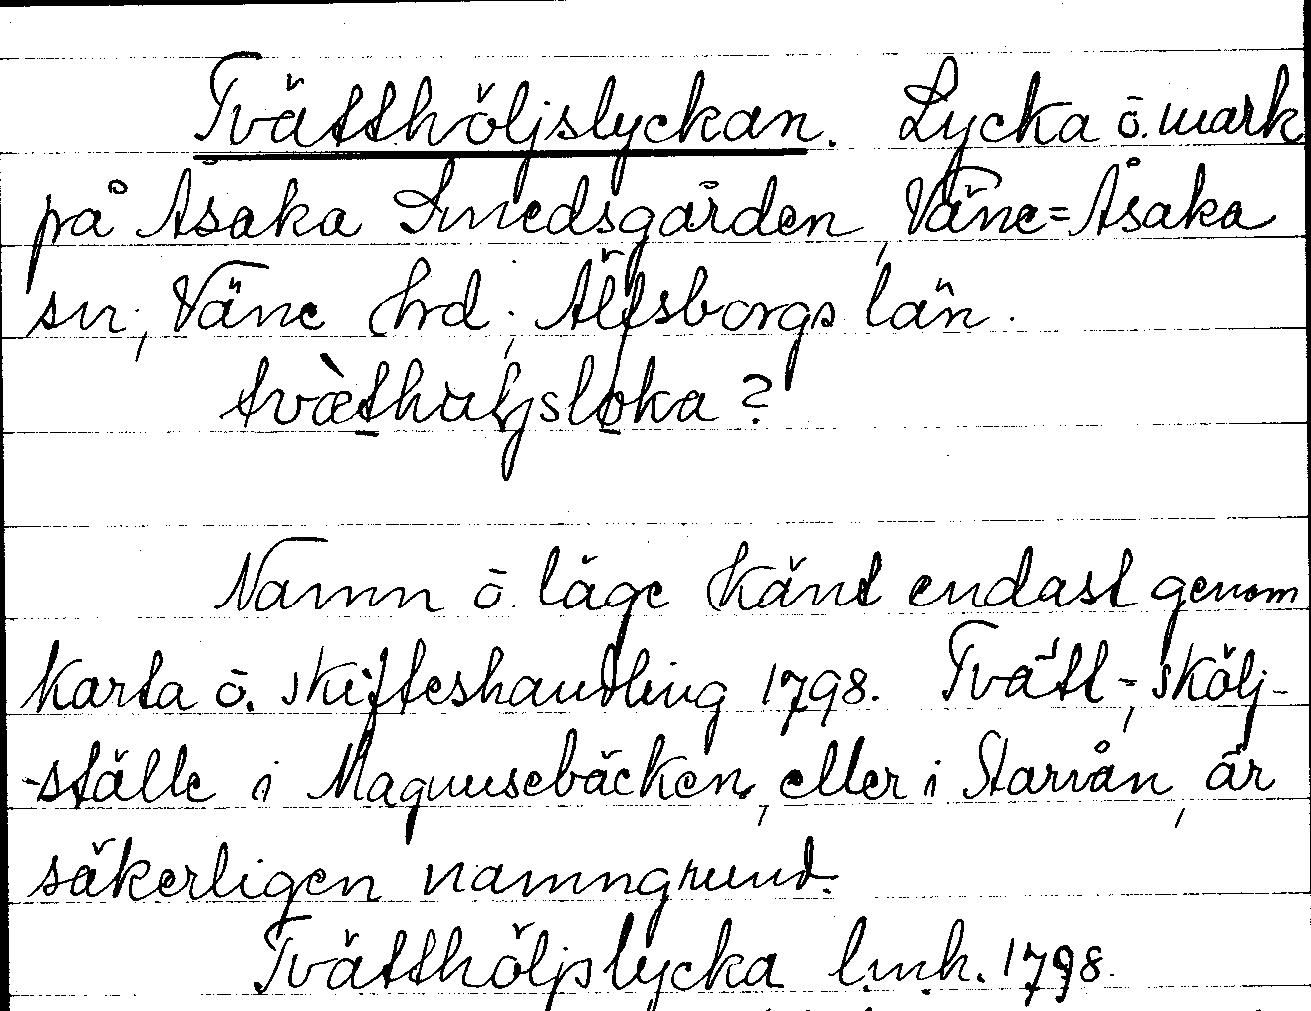 Tvätthöljslyckan. Lycka ō. mark
på Åsaka Smedsgården, Väne=Åsaka
sn; Väne hrd; Älfsborgs län.
tvæ̀thuljsloka?
Namn ō. läge känt endast genom
karta ō. skifteshandling 1798. Tvätt-, skölj-
-ställe i Magnusebäcken, eller i Starrån, är
säkerligen namngrund.
Tvätthöljslycka l.m.h. 1798.